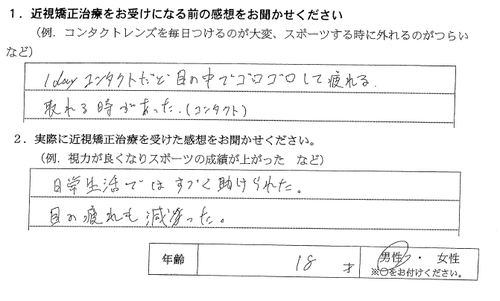 1．近視矯正治療をお受けになる前の感想をお聞かせください
（例．コンタクトレンズを毎日つけるのが大変、スポーツする時に外れるのがつらい
など）
1day コンタクトだと目の中でゴロゴロして疲れる.
取れる時があった.(コンタクト)
2．実際に近視矯正治療を受けた感想をお聞かせください。
（例．視力が良くなりスポーツの成績が上がった　など）
日常生活ではすごく助けられた。
目の疲れも減った。
年齢 18 才 男性・女性
※○をお付けください。